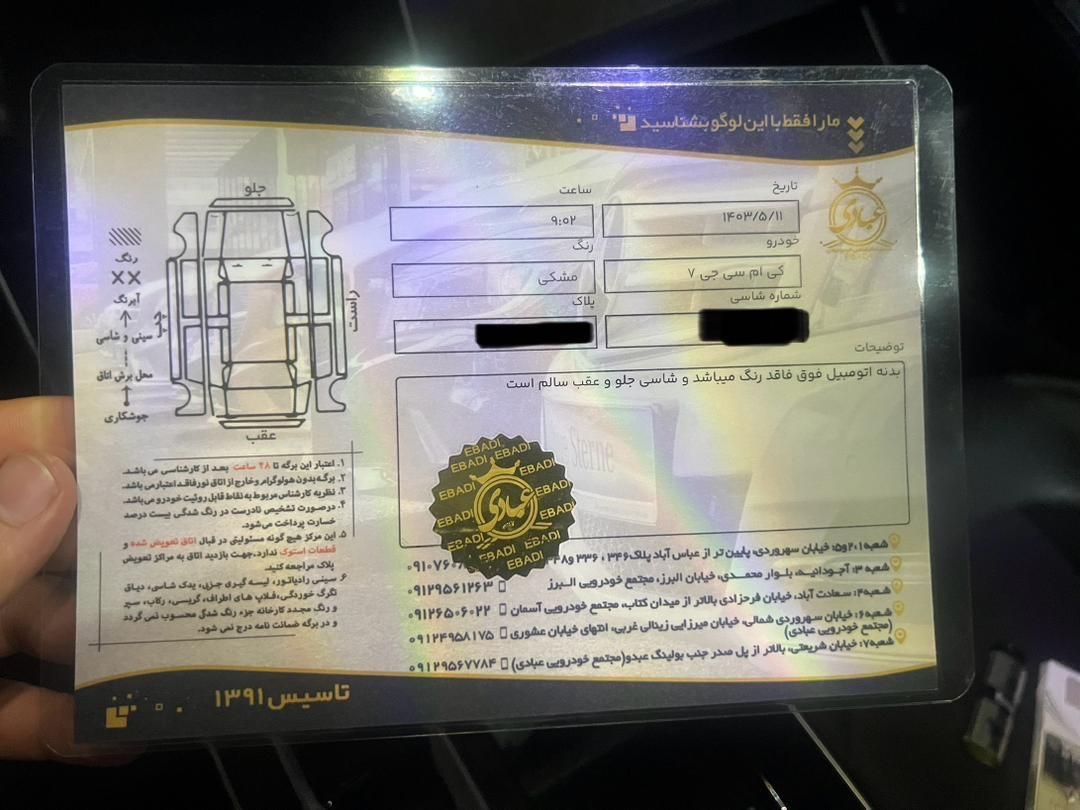 ما را فقط با این لوگو بشناسید
عبادی
تاریخ
ساعت
۱۴۰۳/۵/۱۱
۹:۰۲
خودرو
رنگ
کی ام سی جی ۷
مشکی
شماره شاسی
پلاک
توضیحات
بدنه اتومبیل فوق فاقد رنگ میباشد و شاسی جلو و عقب سالم است
جلو
راست
چپ
عقب
رنگ
آبرنگ
سینی و شاسی
محل برش اتاق
جوشکاری
۱. اعتبار این برگه تا ۴۸ ساعت بعد از کارشناسی می باشد.
۲. برگه بدون هولوگرام و خارج از اتاق نور فاقد اعتبار می باشد.
۳. نظریه کارشناس مربوط به نقاط قابل روئیت خودرو می‌باشد.
۴. در صورت تشخیص نادرست در رنگ شدگی بیست درصد
خسارت پرداخت می‌شود.
۵. این مرکز هیچ گونه مسئولیتی در قبال اتاق تعویض شده و
قطعات استوک ندارد، جهت بازدید اتاق به مراکز تعویض
پلاک مراجعه کنید.
۶. سینی رادیاتور، لیسه گیری جزئی، یدک شاسی، دیاق
تگرگ خوردگی، فلاپ های اطراف، گریسی، رکاب، سپر
و رنگ مجدد کارخانه جزء رنگ شدگی محسوب نمی گردد
و در برگه ضمانت نامه درج نمی شود.
EBADI EBADI EBADI EBADI EBADI EBADI EBADI EBADI EBADI EBADI
عبادی
Sterne
شعبه۱،۲و۵: خیابان سهروردی، پایین تر از عباس آباد پلاک۳۴۶ ، ۳۳۶ و۳۴۸
شعبه ۳: آجودانیه، بلوار محمدی، خیابان البرز، مجتمع خودرویی البرز ۰۹۱۲۹۵۶۱۲۶۳
شعبه۴: سعادت آباد، خیابان فرحزادی بالاتر از میدان کتاب، مجتمع خودرویی آسمان ۰۹۱۲۶۵۰۶۰۲۲
شعبه۶: خیابان سهروردی شمالی، خیابان میرزایی زینالی غربی، انتهای خیابان عشوری ۰۹۱۲۴۹۵۸۱۷۵
(مجتمع خودرویی عبادی)
شعبه۷: خیابان شریعتی، بالاتر از پل صدر جنب بولینگ عبدو(مجتمع خودرویی عبادی) ۰۹۱۲۹۵۶۷۷۸۴
تاسیس ۱۳۹۱